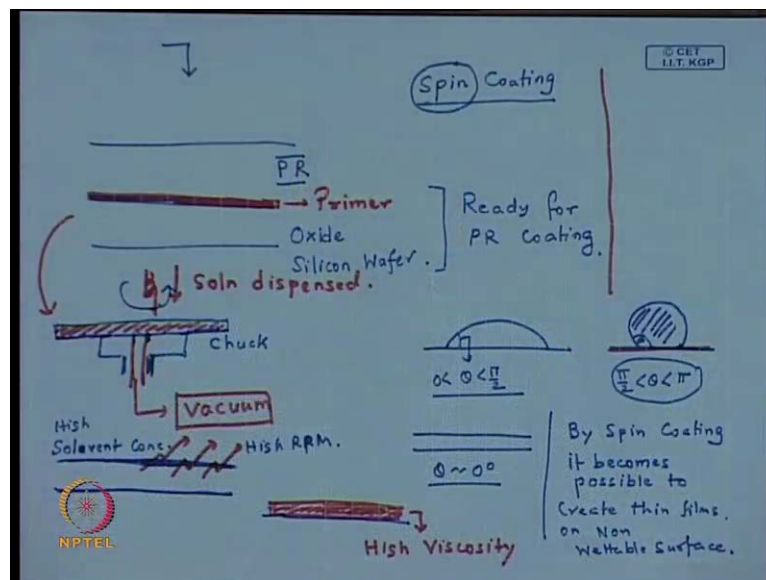 © CET
I.I.T. KGP
Spin Coating
PR
Primer
Oxide
Silicon Wafer.
Ready for
PR Coating.
Soln dispensed.
Chuck
Vacuum
High
Solavent Conc.
High RPM.
High Viscosity
0< θ < π/2
π/2 < θ < π
θ ~ 0°
By Spin Coating
it becomes
possible to
Create thin films.
on Non
Wettable Surface.
NPTEL